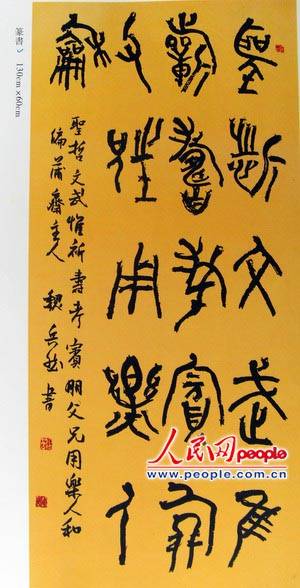 篆書 130cm×60cm
聖哲文武惟
祈壽考賓朋
父兄用樂人
龢
聖哲文武惟祈壽考賓朋父兄用樂人和
編蒲齋主人 魏兵 書
人民网 people
www.people.com.cn